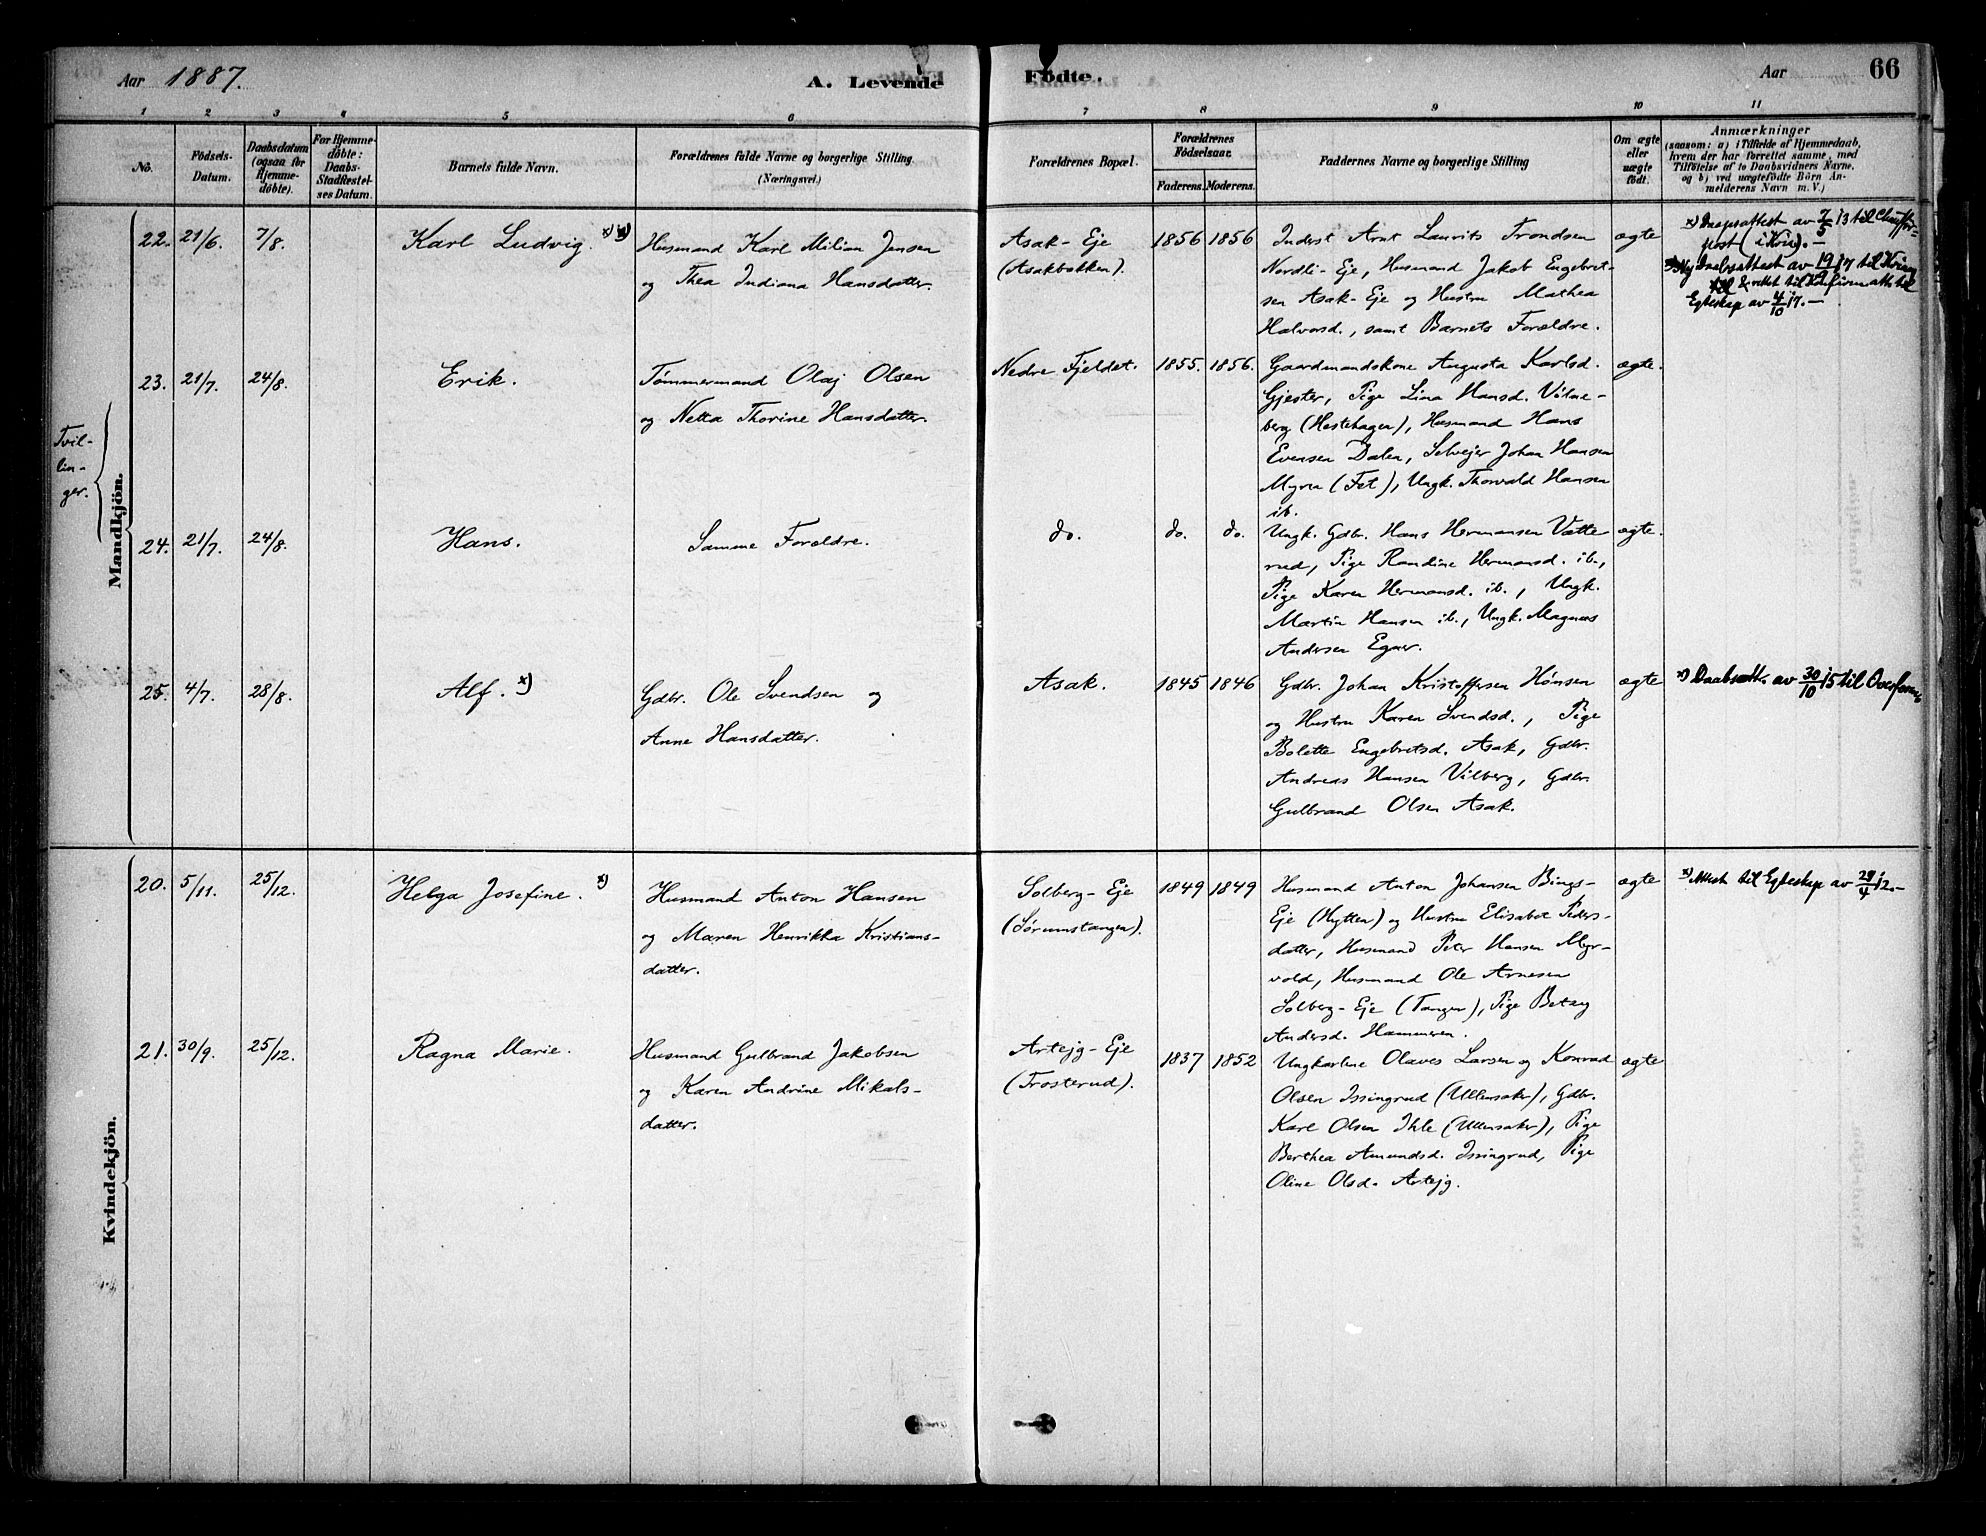 Aar 1887.
A. Levende
Födte.
Aar
66
1 2 3 4 5 6 7 8 9 10 11
No.
Födsels-
Datum.
Daabsdatum
(ogsaa for
Hjemme-
döbte).
For Hjemme-
döbte:
Daabs-
Stadfæstel-
ses Datum.
Barnets fulde Navn.
Forældrenes fulde Navne og borgerlige Stilling
(Næringsvei.)
Forældrenes Bopæl.
Forældrenes
Födselsaar.
Faderens. Moderens.
Faddernes Navne og borgerlige Stilling
Om ægte
eller
uægte
födt.
Anmærkninger
(saasom: a) i Tilfælde af Hjemmedaab,
hvem der har forrettet samme, med
Tilföielse af to Daabsvidners Navne,
og b) ved uægtefödte Börn An-
melderens Navn m. V.)
Mandkjön.
22. 21/6. 7/8. Karl Ludvig. x) x)
Husmand Karl Milian Jensen
og Thea Indiana Hansdatter.
Asak-Eje
(Asakbakken).
1856 1856
Inderst Arnt Laurits Trondsen
Nordli-Eje, Husmand Jakob Engebret-
sen Asak-Eje og Hustru Mathea
Halvorsd., samt Barnets Forældre.
ægte
x) Daapsattest av 7/5 13 til
post (i Kra). —
Ny Daabsattest av 19/9 17 til
Egteskap av 4/10 17. —
Tvil-
lin-
ger.
23. 21/7. 24/8. Erik.
Tømmermand Olaj Olsen
og Netta Thorine Hansdatter.
Nedre Fjeldet.
1855. 1856.
Gaardmandskone Augusta Karlsd.
Gjester, Pige Lina Hansd. Vilne-
berg (Hestehagen), Husmand Hans
Evensen Dalen, Selvejer Johan Hansen
Myren (Fet), Ungk. Thorvald Hansen
ib.
ægte.
24. 21/7. 24/8. Hans.
Samme Forældre.
do. do. do.
Ungk. Gdbr. Hans Hermansen Vætte
rud, Pige Randine Hermansd. ib.,
Pige Karen Hermansd. ib., Ungk.
Martin Hansen ib., Ungk. Magnus
Andersen Egner.
ægte.
25. 4/7. 28/8. Alf. x)
Gdbr. Ole Svendsen og
Anne Hansdatter.
Asak.
1845 1846
Gdbr. Johan Kristoffersen Hønsen
og Hustru Karen Svendsd., Pige
Bolette Engebretsd. Asak, Gdbr.
Andreas Hansen Vilberg, Gdbr.
Gulbrand Olsen Asak.
ægte
x) Daabsatt. av 30/10 15 til
Kvindekjön.
20. 5/11. 25/12. Helga Josefine. x)
Husmand Anton Hansen
og Maren Henrikka Kristians-
datter.
Solberg-Eje
(Sørumstangen).
1849 1849
Husmand Anton Johansen Bings-
Eje (Hytten) og Hustru Elisabet Peders-
datter, Husmand Peter Hansen Myr-
vold, Husmand Ole Arnesen
Solberg-Eje (Tangen), Pige Betzy
Andersd. Hammeren.
ægte
x) Attest til Egteskap av 29/4 12.—
21. 30/9. 25/12. Ragna Marie.
Husmand Gulbrand Jakobsen
og Karen Andrine Mikals-
datter.
Artejg-Eje
(Trosterud).
1837 1852
Ungkarlene Olaves Larsen og Konrad
Olsen Issingrud (Ullensaker), Gdbr.
Karl Olsen Ihle (Ullensaker), Pige
Berthea Amundsd. Issingrud, Pige
Oline Olsd. Artejg.
ægte